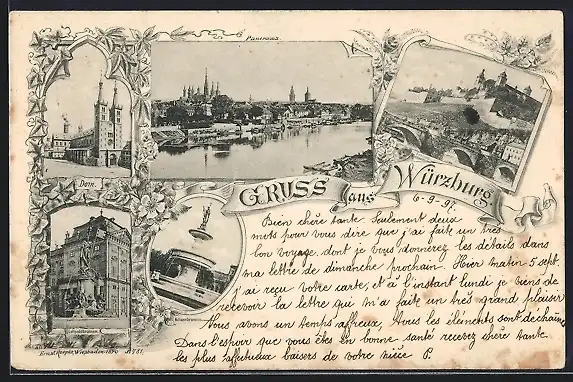 Panorama.
Dom.
GRUSS aus Würzburg
6-9-97.
Bien chère tante Seulement deux
mots pour vous dire que j'ai fait un très
bon voyage dont je vous donnerez les détails dans
ma lettre de dimanche prochain. Hier matin 5 sept.
j'ai reçu votre carte, et à l'instant lundi je viens de
recevoir la lettre qui m'a fait un très grand plaisir
Nous avons un temps affreux, tous les éléments sont déchaînés
Dans l'espoir que vous êtes en bonne santé recevez chère tante
les plus affectueux baisers de votre nièce P.
Ernst Hoepfn, Wiesbaden 1896